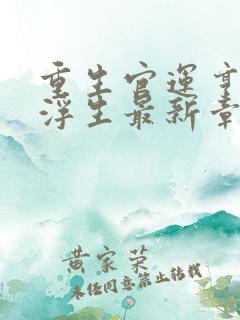 重生官运
浮生最新章
黄家荣
未经同意禁止转载